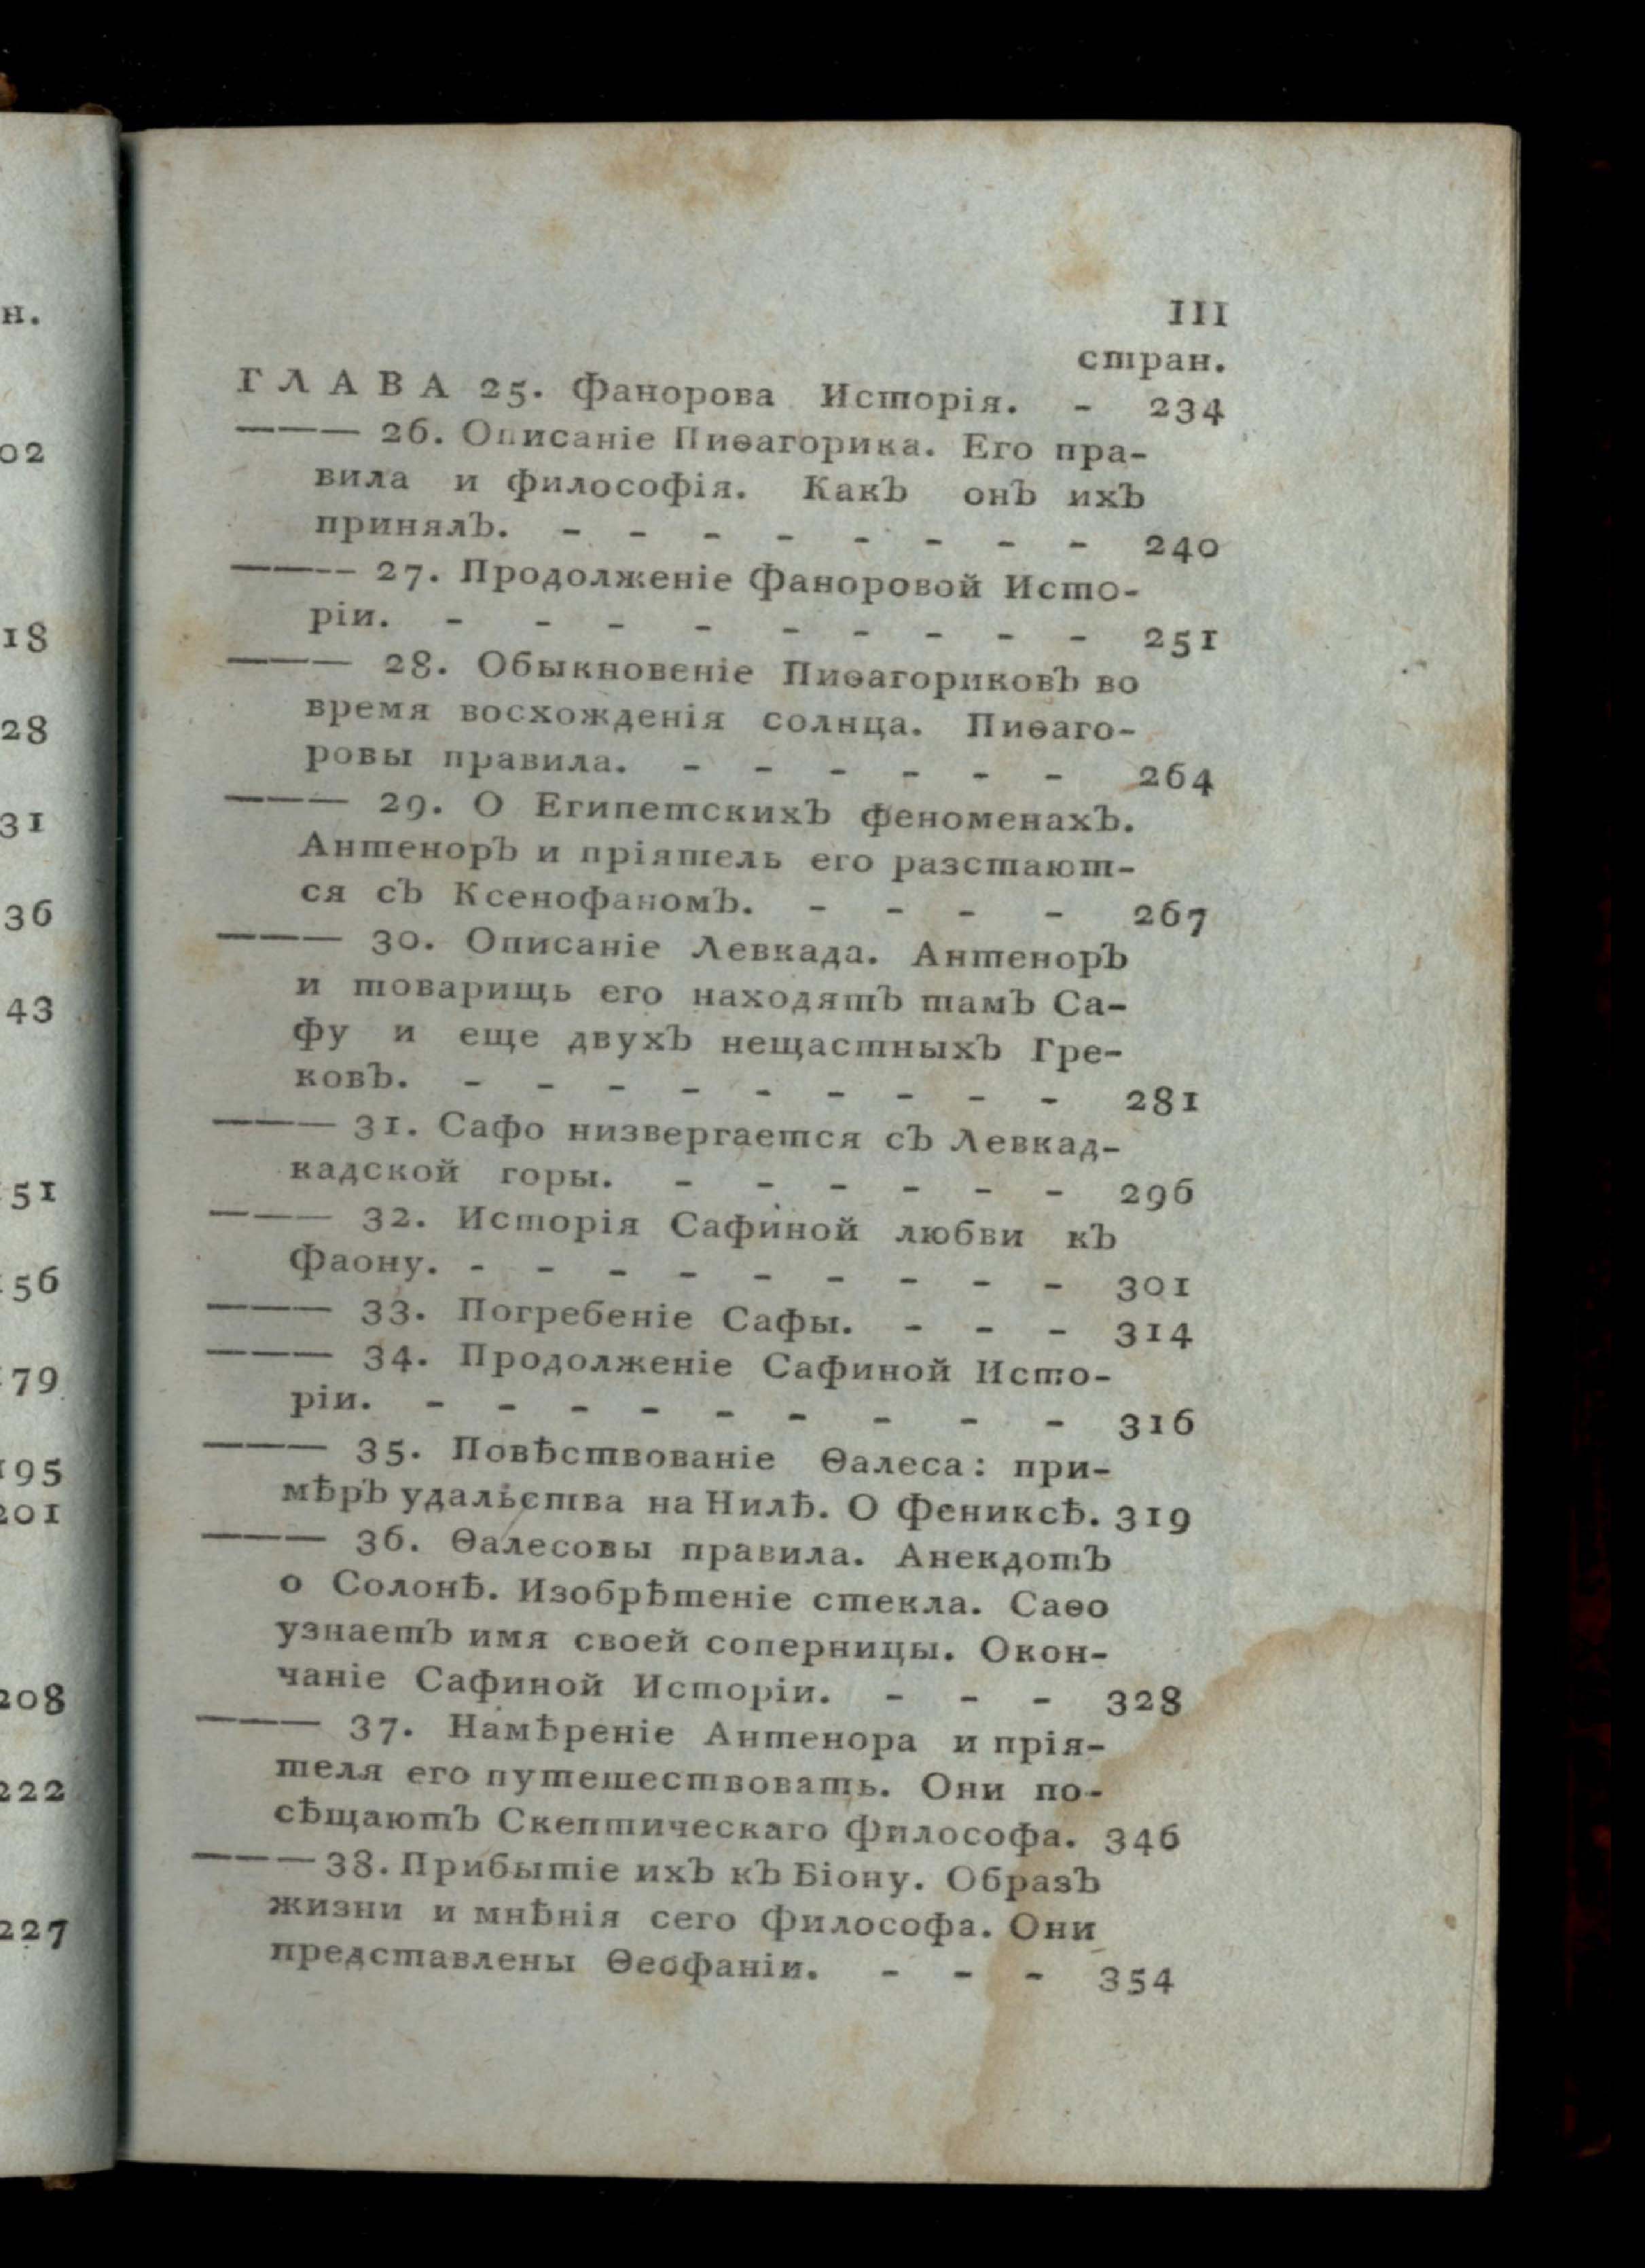 н.
02
18
28
31
36
43
51
56
79
195
201
208
222
227
III
стран.
ГЛАВА 25. Фанорова Исторія. - 234
——— 26. Описаніе Пиѳагорика. Его пра-
вила и философія. Какъ онъ ихъ
принялъ. - - - - - - - - 240
——— 27. Продолженіе Фаноровой Исто-
ріи. - - - - - - - - - 251
——— 28. Обыкновеніе Пиѳагориковъ во
время восхожденія солнца. Пиѳаго-
ровы правила. - - - - - - 264
——— 29. О Египетскихъ феноменахъ.
Антеноръ и пріятель его разстают-
ся съ Ксенофаномъ. - - - - 267
——— 30. Описаніе Левкада. Антеноръ
и товарищь его находятъ тамъ Са-
фу и еще двухъ нещастныхъ Гре-
ковъ. - - - - - - - - - 281
——— 31. Сафо низвергается съ Левкад-
кадской горы. - - - - - - 296
——— 32. Исторія Сафиной любви къ
Фаону. - - - - - - - - - 301
——— 33. Погребеніе Сафы. - - - 314
——— 34. Продолженіе Сафиной Исто-
ріи. - - - - - - - - - 316
——— 35. Повѣствованіе Ѳалеса: при-
мѣръ удальства на Нилѣ. О Фениксѣ. 319
——— 36. Ѳалесовы правила. Анекдотъ
о Солонѣ. Изобрѣтеніе стекла. Саѳо
узнаетъ имя своей соперницы. Окон-
чаніе Сафиной Исторіи. - - - 328
——— 37. Намѣреніе Антенора и прія-
теля его путешествовать. Они по-
сѣщаютъ Скептическаго Философа. 346
——— 38. Прибытіе ихъ къ Біону. Образъ
жизни и мнѣнія сего Философа. Они
представлены Ѳеофаніи. - - - 354